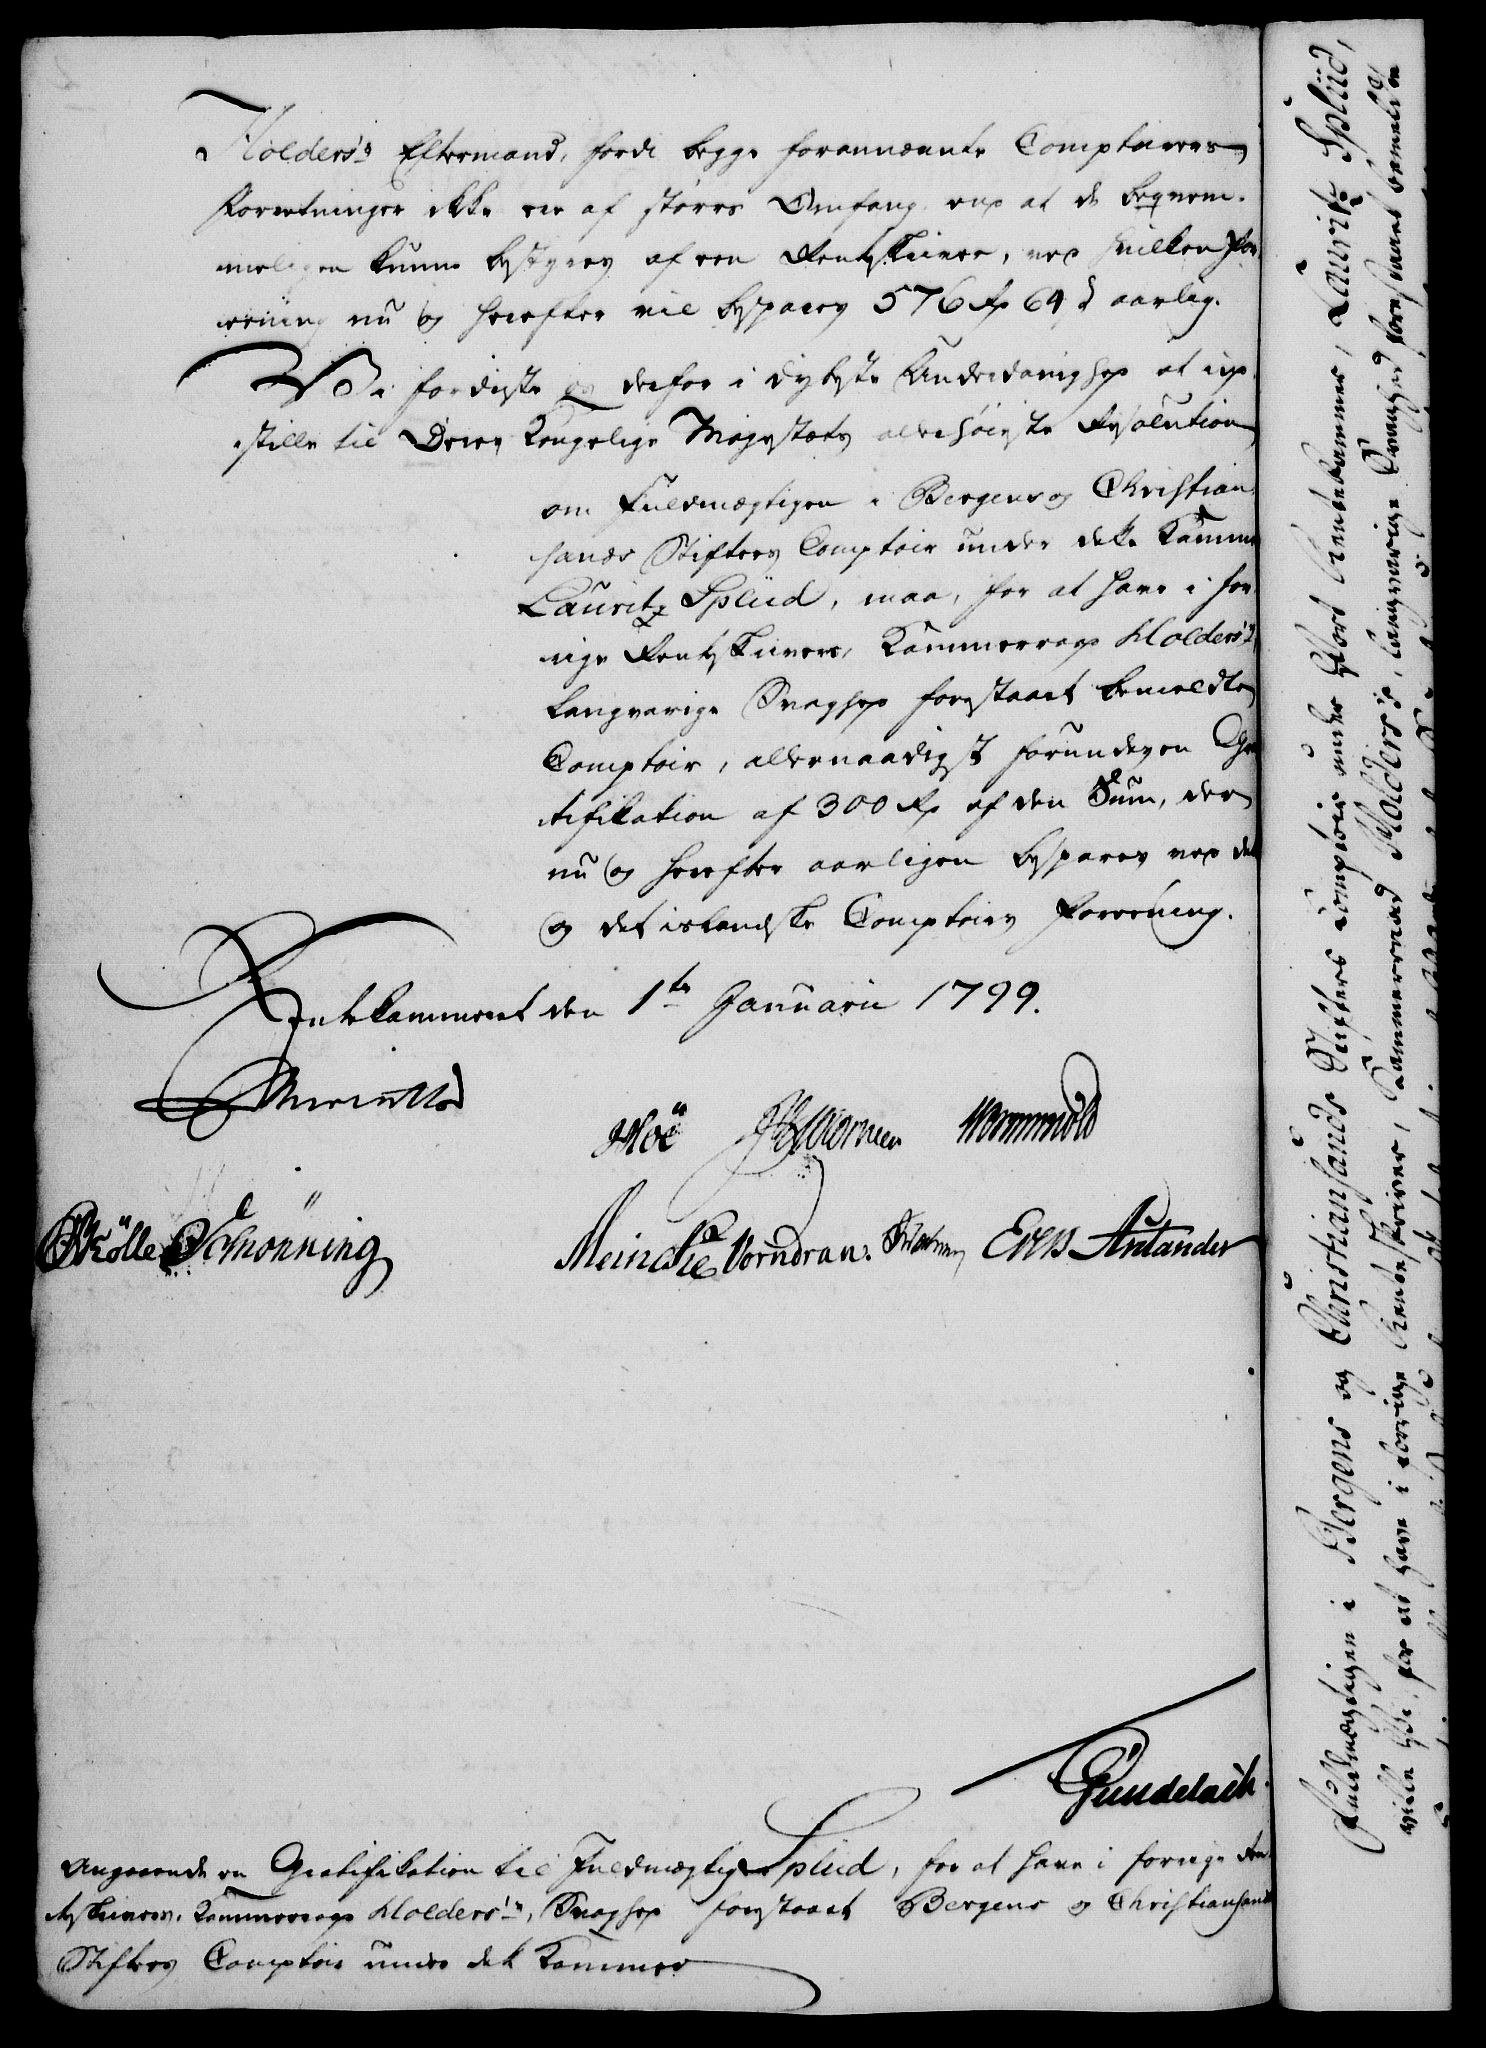 Holders's Eftermand, fordi begge forannævnte Comptoirers
Forretninger ikke ere af større Omfang end at de beqvem-
meligen kunne bestyres af een Renteskriver, ved hvilken For-
eening nu og herefter vil bespares 576 Rd 64 s aarlig.
Vi fordriste os derfor i dybeste Underdanighed at ind-
stille til Deres Kongelige Majestæts allerhøieste Resolution
om Fuldmægtigen i Bergens og Christian-
sands Stifters Comptoir under dette Kammer
Lauritz Splüd, maa, for at have i for-
rige Renteskriver, Kammerraad Holders's
langvarige Svaghed forestaaet bemeldte
Comptoir, allernaadigst forundes en Gra-
tifikation af 300 Rd af den Sum, der
nu og herefter aarligen bespares ved dets
og det islandske Comptoirs Foreening.
Rentekammeret den 1te Januarii 1799.
Hoë Wormskiold
Kølle Schønning
Meincke Vorndran Evers Antander
Gundelach.
Angaaende en Gratifikation til Fuldmægtig Splüd, for at have i forrige Ren-
teskrivers, Kammerraad Holders's, Svaghed forestaaet Bergens og Christiansands
Stifters Comptoir under dette Kammer
Fuldmægtigen i Bergens og Christiansands Stifters Comptoir under Vort Rentekammer, Lauritz Splüd,
ville Vi, for at have i forrige Renteskriver, Kammerraad Holders's, langvarige Svaghed forestaaet bemeldte